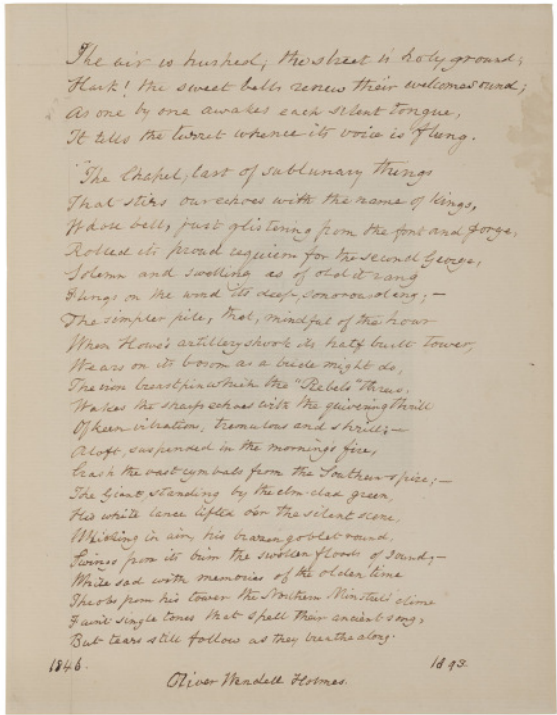 The air is hushed; the street is holy ground;
Hark! the sweet bells renew their welcome sound;
As one by one awakes each silent tongue,
It tells the turret whence its voice is flung.
"The Chapel, last of sublunary things
That stirs our echoes with the name of Kings,
Whose bell, just glistening from the font and forge,
Rolled its proud requiem for the second George,
Solemn and swelling, as of old it rang
Flings on the wind its deep, sonorous clang;—
The simpler pile, that, mindful of the hour
When Howe's artillery shook its half built tower,
Wears on its bosom as a bride might do,
The iron breastpin which the "Rebels" threw,
Wakes the sharp echoes with the quivering thrill
Of keen vibration, tremulous and shrill;—
Aloft, suspended in the morning's fire,
Crash the vast cymbals from the Southern spire;—
The Giant, standing by the elm-clad green,
His white lance lifted o'er the silent scene,
Whirling in air, his brazen goblet round,
Swings from its brim the swollen floods of sound;—
While sad with memories of the olden time
Throbs from his tower the Northern Minstrel's chime
Faint single tones that spell their ancient song,
But tears still follow as they breathe along.
1846. 1893.
Oliver Wendell Holmes.